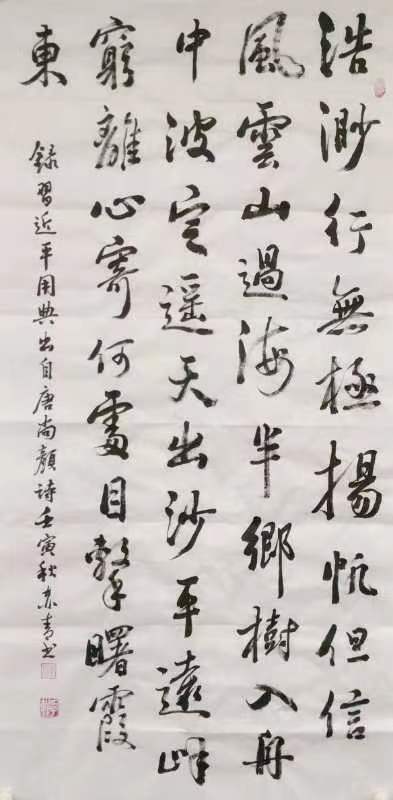 浩渺行無極揚帆但信
風雲山過海半鄉樹入舟
中波定遥天出沙平遠岸
窮離心寄何處目擊曙霞
東
録習近平用典出自唐尚顏詩壬寅秋亦青书